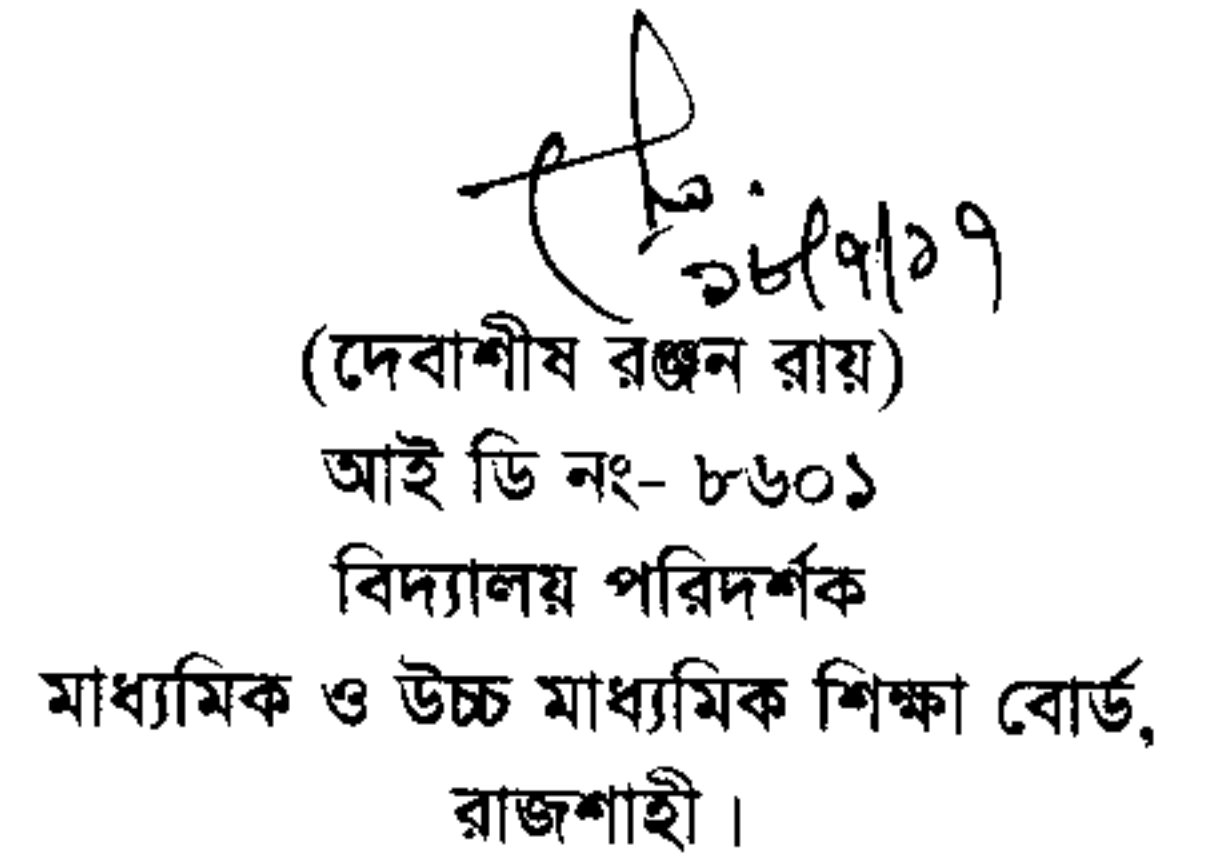 ১৮/৭/১৭
(দেবাশীষ রঞ্জন রায়)
আই ডি নং- ৮৬০১
বিদ্যালয় পরিদর্শক
মাধ্যমিক ও উচ্চ মাধ্যমিক শিক্ষা বোর্ড,
রাজশাহী।